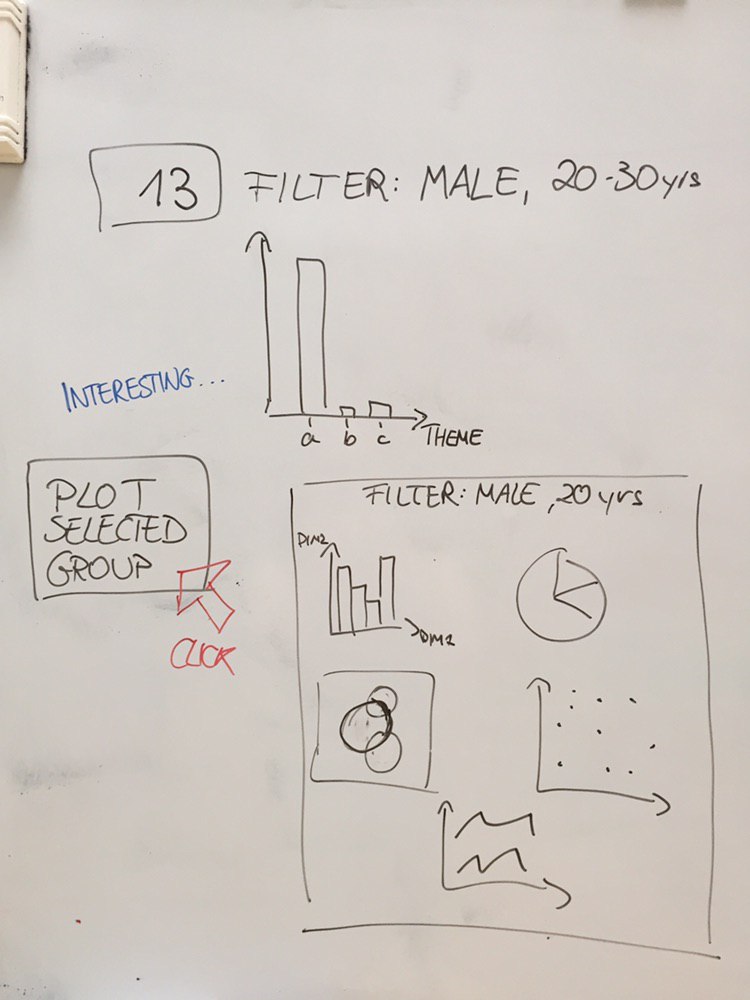 13 FILTER: MALE, 20-30yrs
INTERESTING...
a b c THEME
PLOT
SELECTED
GROUP
CLICK
FILTER: MALE, 20 yrs
DIM2
DIM1